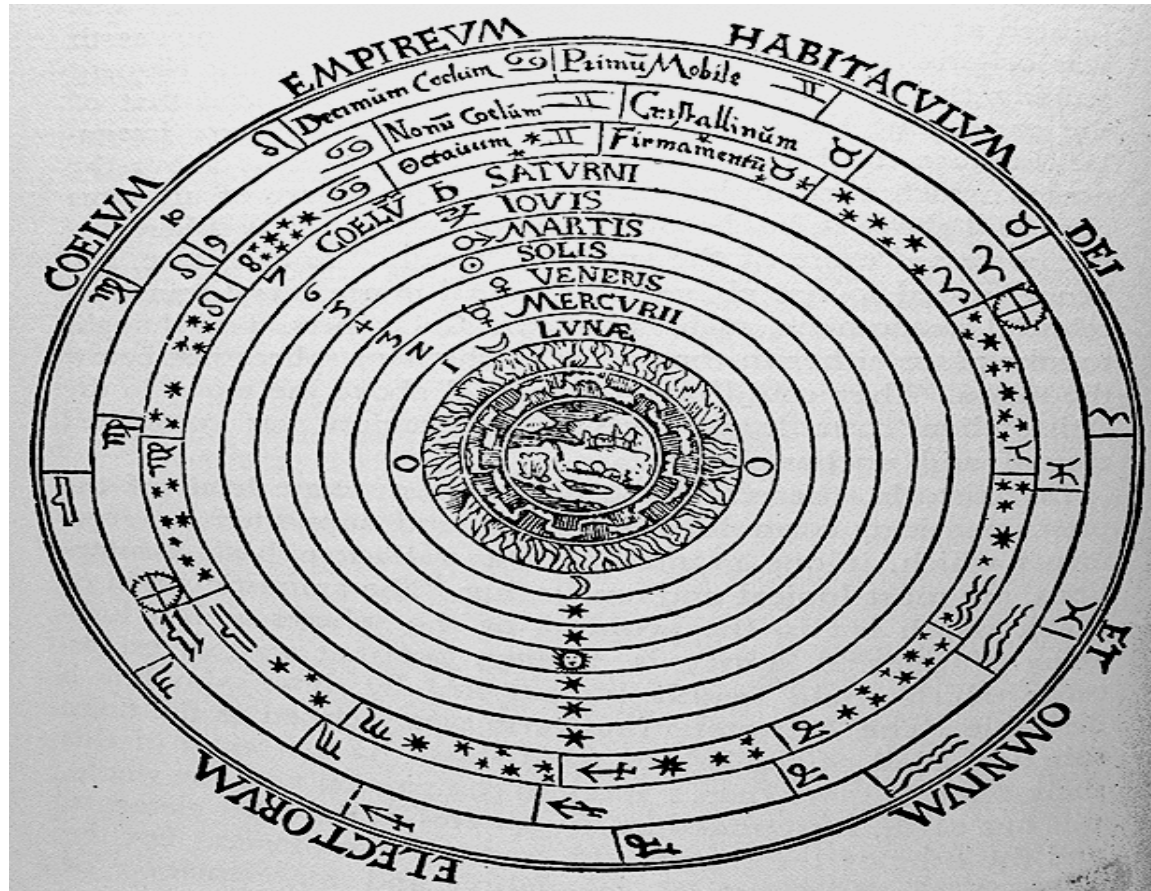 COELVM EMPIREVM HABITACVLVM DEI ET OMNIVM ELECTORVM
10 Decimùm Coelum Primũ Mobile
9 Nonũ Coelũm Cristallinũm
8 Octauum Firmamentũ
7 COELṼ SATVRNI
6 IOVIS
5 MARTIS
4 SOLIS
3 VENERIS
2 MERCVRII
1 LVNÆ